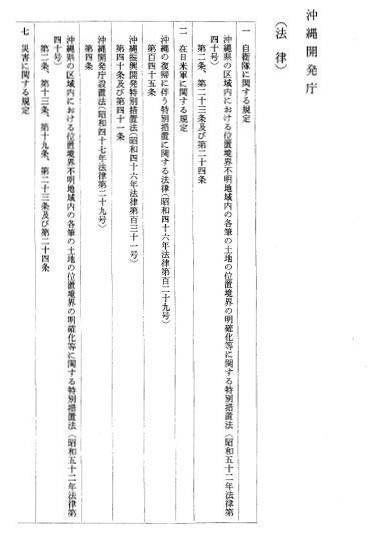 沖縄開発庁
（法律）
一 自衛隊に関する規定
沖縄県の区域内における位置境界不明地域内の各筆の土地の位置境界の明確化等に関する特別措置法（昭和五十二年法律第
四十号）
第二条、第二十三条及び第二十四条
二 在日米軍に関する規定
沖縄の復帰に伴う特別措置に関する法律（昭和四十六年法律第百二十九号）
第百四十五条
沖縄振興開発特別措置法（昭和四十六年法律第百三十一号）
第四十条及び第四十一条
沖縄開発庁設置法（昭和四十七年法律第二十九号）
第四条
沖縄県の区域内における位置境界不明地域内の各筆の土地の位置境界の明確化等に関する特別措置法（昭和五十二年法律第
四十号）
第二条、第十三条、第十九条、第二十三条及び第二十四条
七 災害に関する規定